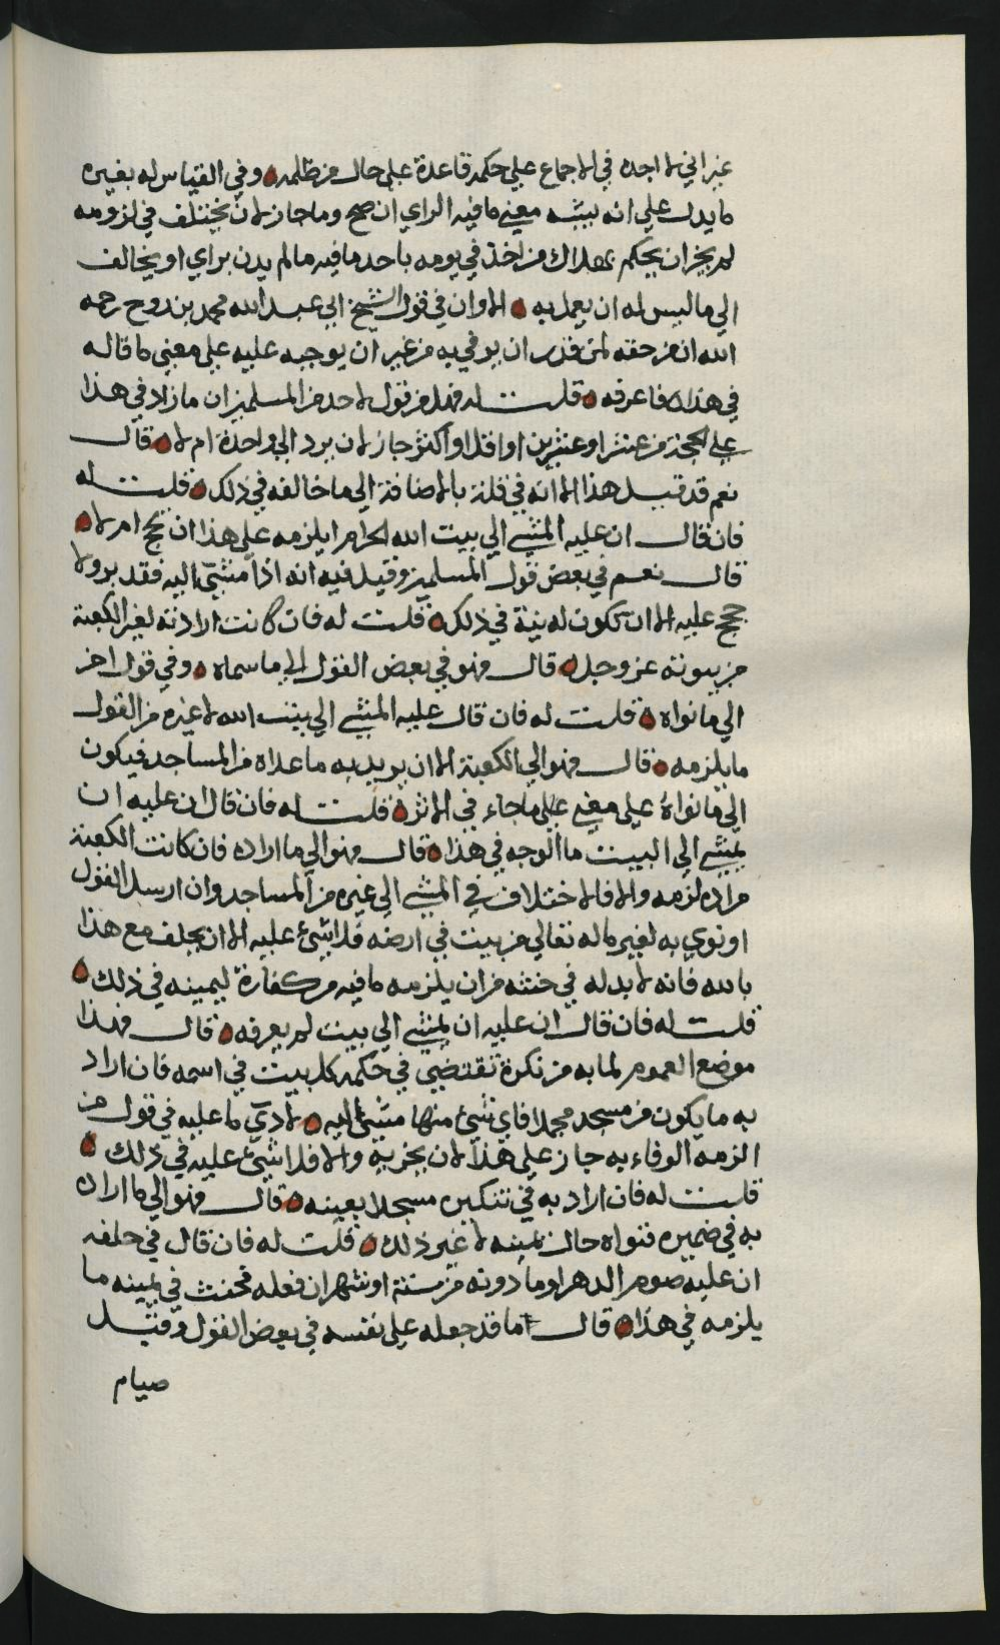 غير اني لا اجده في الاجماع على حكمه قاعدة على حال من ظلمه وفي القياس له بغيره
ما يدل على انه يشبه معنى ما فيه الراي ان صح وما جاز لان يختلف في لزومه
لم يجز ان يحكم به هلاك من اخذ في يومه باحد ما فيه ما لم يدن براي او يخالف
الى ما ليس له ان يعمل به الا وان في قول الشيخ ابي عبد الله محمد بن روح رحمه
الله ان من حقه لمن قدر ان يوفي به من غير ان يوجبه عليه على معنى ما قاله
في هذا فاعرفه قلت له فهل من قول لاحد من المسلمين ان ما زاد في هذا
على الحجة من عشر او عشرين او اقل او اكثر جاز لان يرد الى واحدة ام لا قال
نعم قد قيل هذا الا انه في قلة بالاضافة الى ما خالفه في ذلك قلت له
فان قال ان عليه المشي الى بيت الله الحرام ايلزمه على هذا ان يحج ام لا
قال نعم في بعض قول المسلمين وقيل فيه انه اذا مشى اليه فقد بر ولا
حج عليه الا ان تكون له نية في ذلك قلت له فان كانت ارادته لغير الكعبة
من بيوته عز وجل قال فهو في بعض القول الى ما سماه وفي قول اخر
الى ما نواه قلت له فان قال عليه المشي الى بيت الله لا غيره من القول
ما يلزمه قال فهو الى الكعبة الا ان يريد به ما عداه من المساجد فيكون
الى ما نواه على معنى على ما جاء في الاثر قلت له فان قال ان عليه ان
يمشي الى البيت ما الوجه في هذا قال فهو الى ما اراده فان كانت الكعبة
مراده لزمه والا فالاختلاف في المشي الى غيره من المساجد وان ارسل القول
او نوى به لغير ما له تعالى من بيت في ارضه فلا شيء عليه الا ان يحلف مع هذا
بالله فانه لا بد له في حنثه من ان يلزمه ما فيه من كفارة ليمينه في ذلك
قلت له فان قال ان عليه ان يمشي الى بيت لم يعرفه قال فهذا
موضع العموم لما به من نكرة تقتضي في حكمه كل بيت في اسمه فان اراد
به ما يكون من مسجد مجملا فاي شيء منها مشى اليه لادى ما عليه في قول من
الزمه الوفاء به جاز على هذا لان يجزيه والا فلا شيء عليه في ذلك
قلت له فان اراد به في تنكيره مسجدا بعينه قال فهو الى ما اراده
به في ضميره فنواه حال يمينه لا غير ذلك قلت له فان قال في حلفه
ان عليه صوم الدهر او ما دونه من سنة او شهر ان فعله فحنث في يمينه ما
يلزمه في هذا قال ما قد جعله على نفسه في بعض القول وقيل
صيام